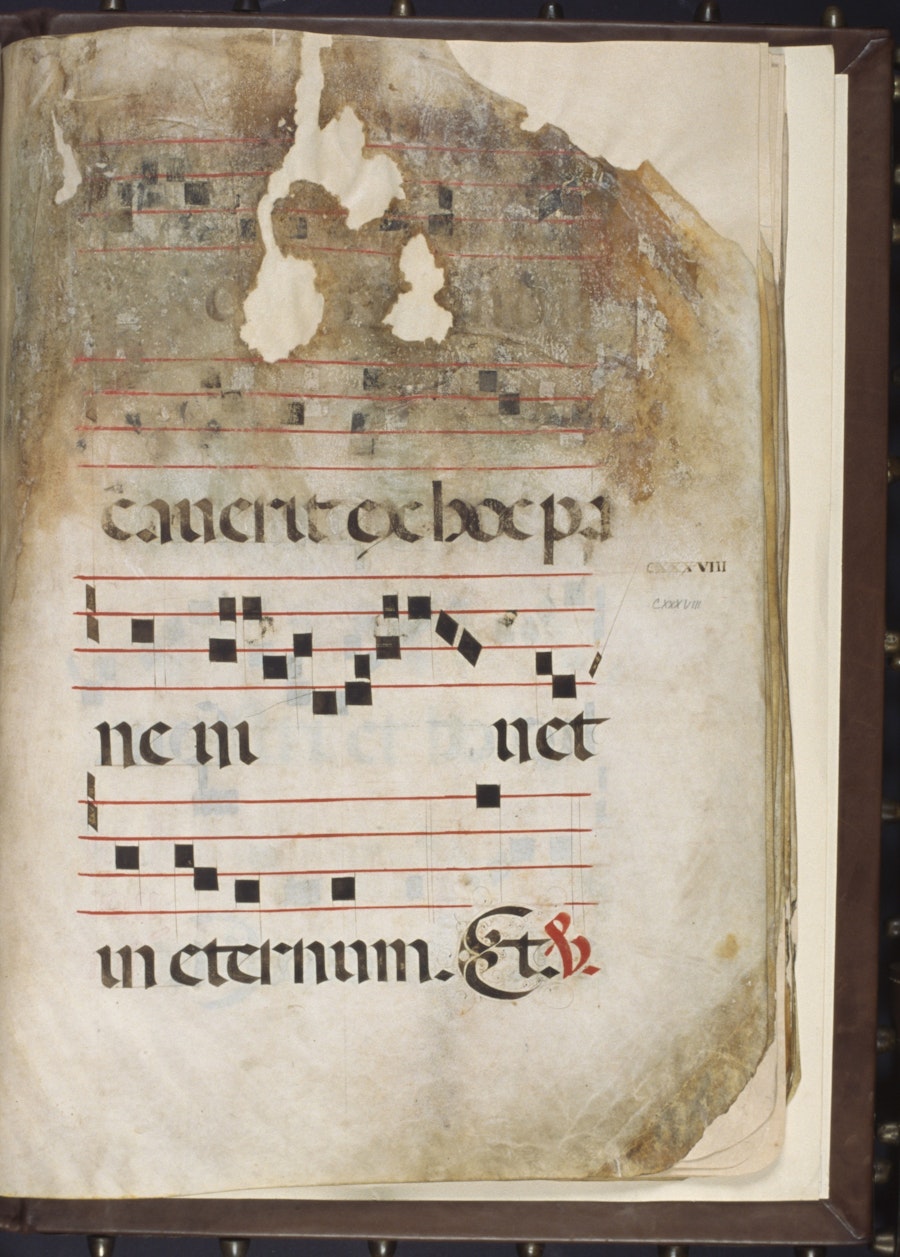 caverit ex hoc pa
CXXXVIII
CXXXVIII
ne m net
in eternum. Et. V.